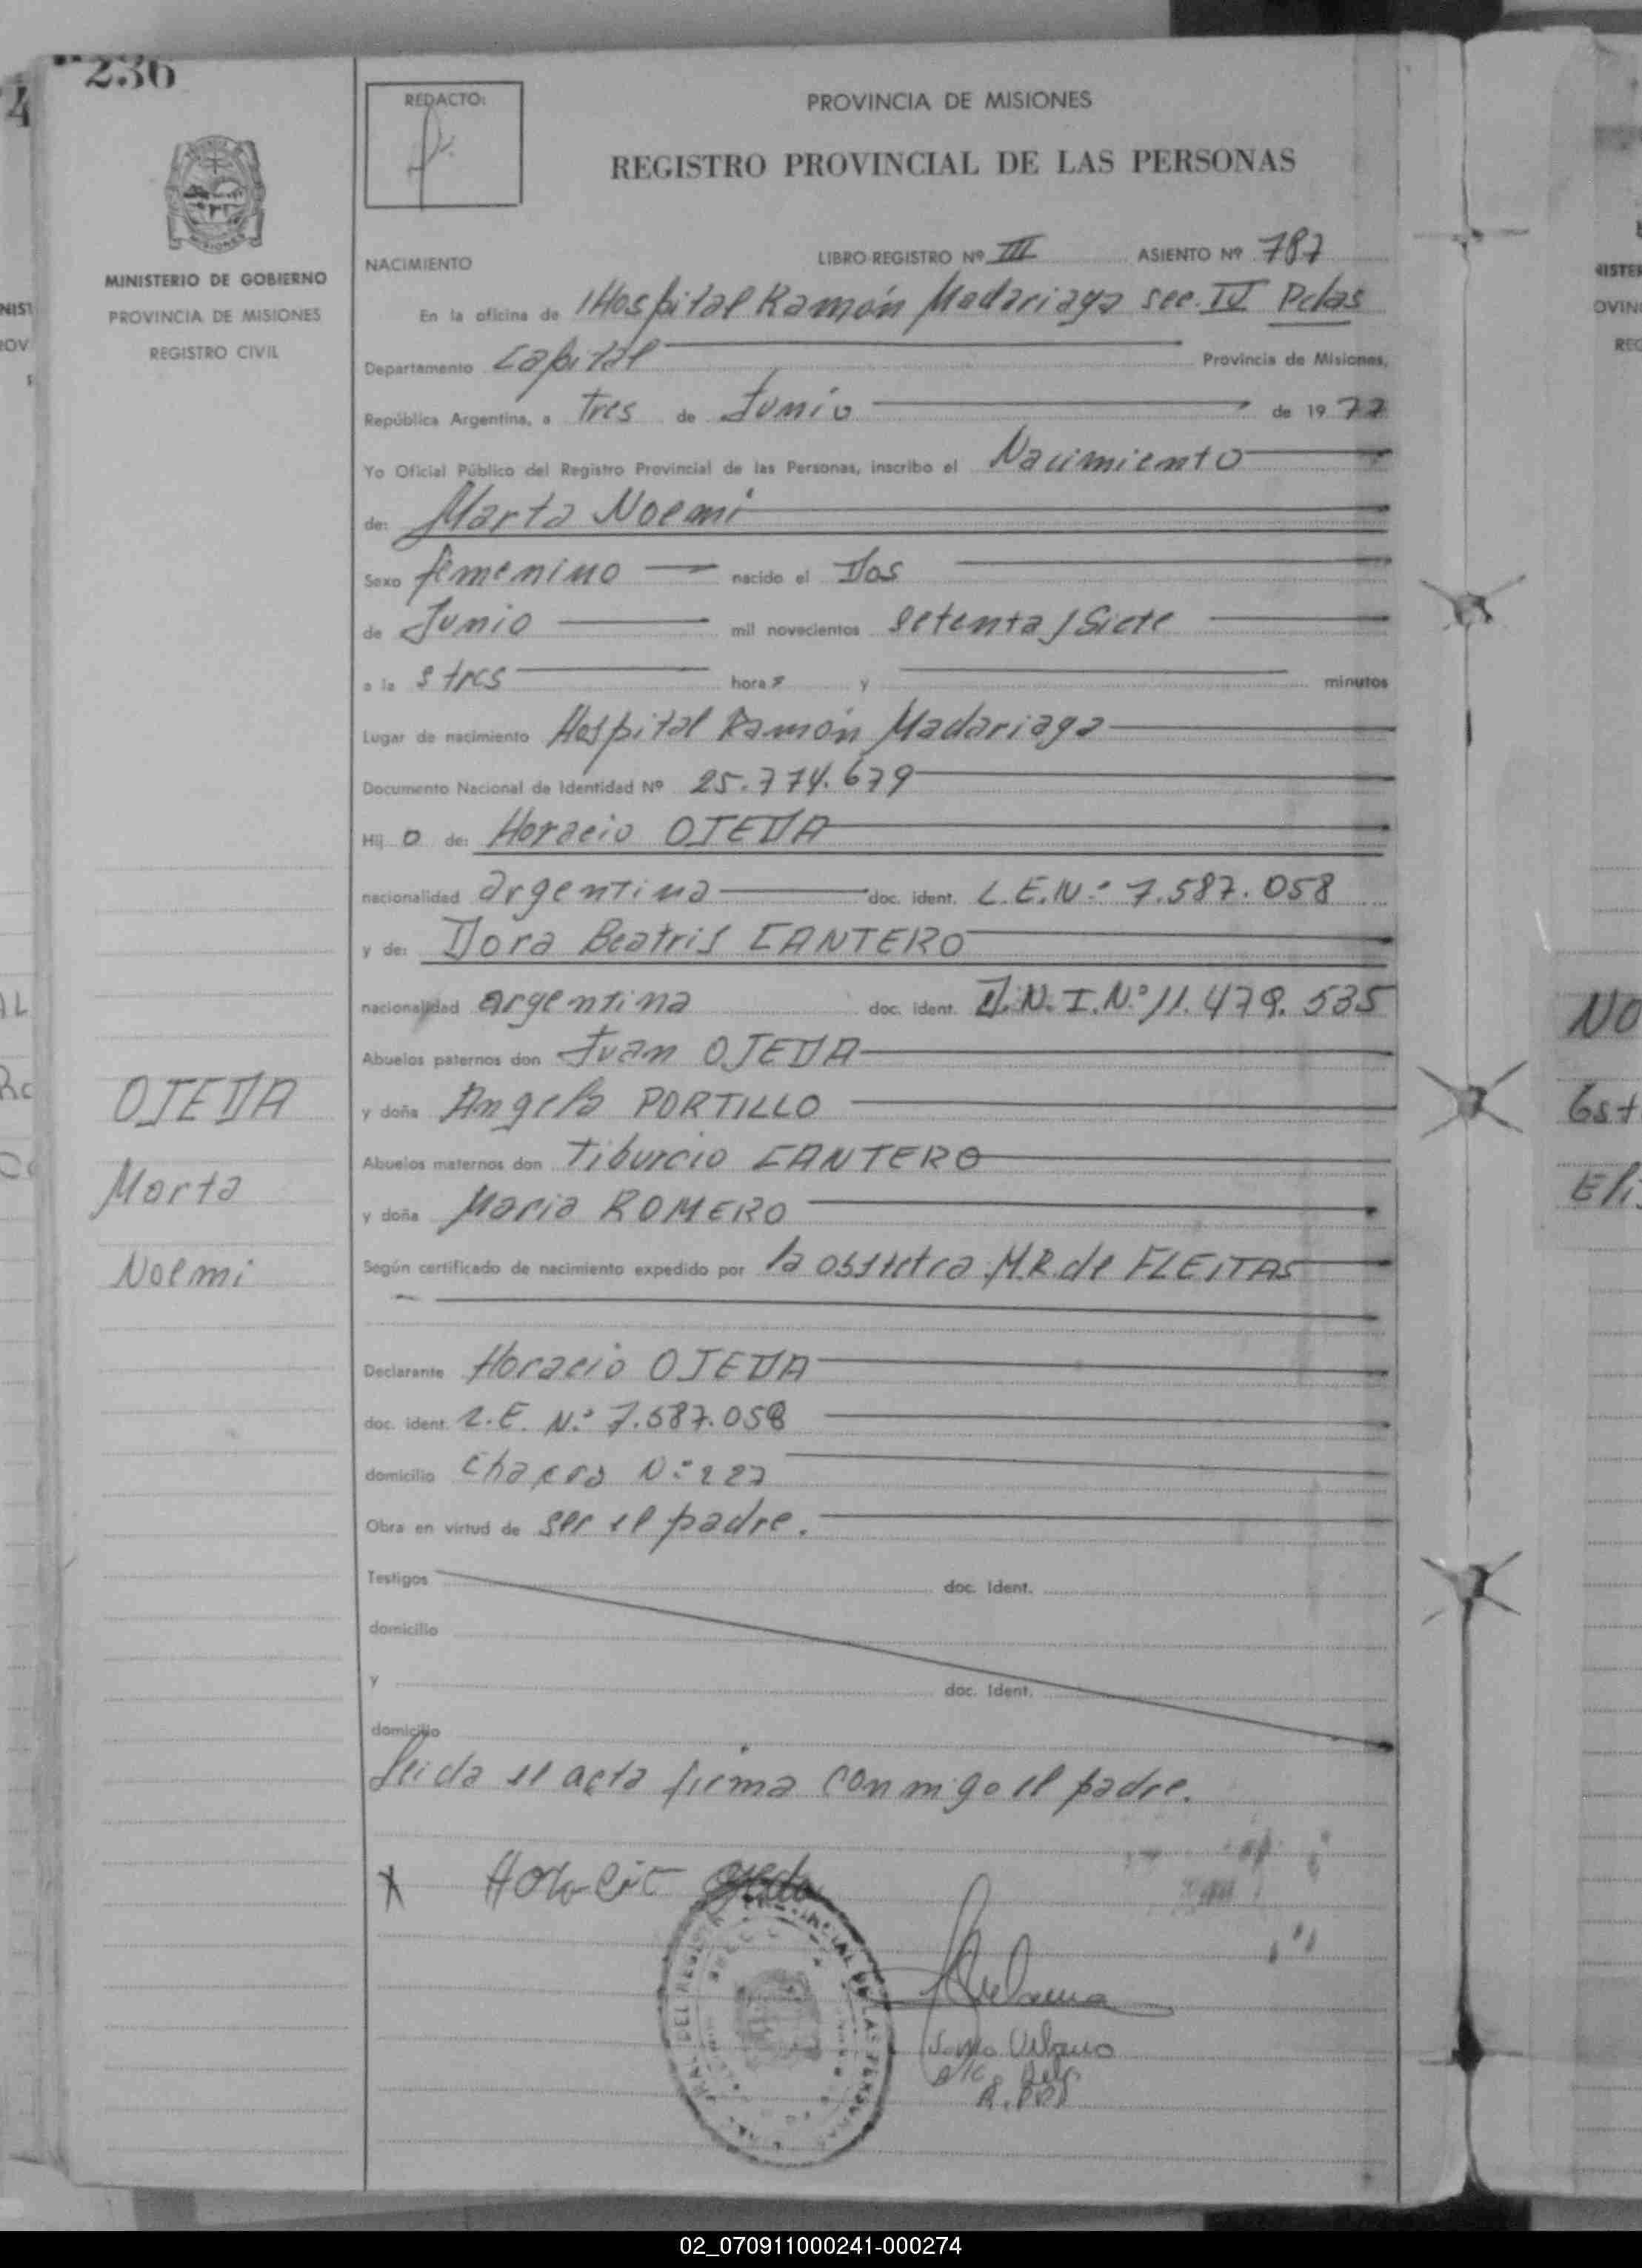 236
REDACTO:
PROVINCIA DE MISIONES
REGISTRO PROVINCIAL DE LAS PERSONAS
MINISTERIO DE GOBIERNO
PROVINCIA DE MISIONES
REGISTRO CIVIL
NACIMIENTO LIBRO-REGISTRO Nº III ASIENTO Nº 787
En la oficina de Hospital Ramón Madariaga sec. IV Pdas
Departamento Capital Provincia de Misiones,
República Argentina, a Tres de Junio de 19 77
Yo Oficial Público del Registro Provincial de las Personas, inscribo el Nacimiento
de: Marta Noemi
Sexo femenino nacido el Dos
de Junio mil novecientos setenta y Siete
a la s tres horas y minutos
Lugar de nacimiento Hospital Ramón Madariaga
Documento Nacional de Identidad Nº 25.774.679
Hij o de: Horacio OJEDA
nacionalidad argentina doc. ident. L.E.N.º 7.587.058
y de: Dora Beatris CANTERO
nacionalidad argentina doc. ident. D.N.I.N.º 11.479.535
Abuelos paternos don Juan OJEDA
y doña Angela PORTILLO
Abuelos maternos don Tiburcio CANTERO
y doña Maria ROMERO
Según certificado de nacimiento expedido por la obstetra M.R. de FLEITAS
Declarante Horacio OJEDA
doc. ident. L.E. N.º 7.587.058
domicilio Chacra N.º 227
Obra en virtud de ser el padre.
Testigos doc. Ident.
domicilio
y doc. Ident.
domicilio
Leida el acta firma conmigo el padre.
OJEDA
Marta
Noemi
Horacio Ojeda
Urbano
02_070911000241-000274